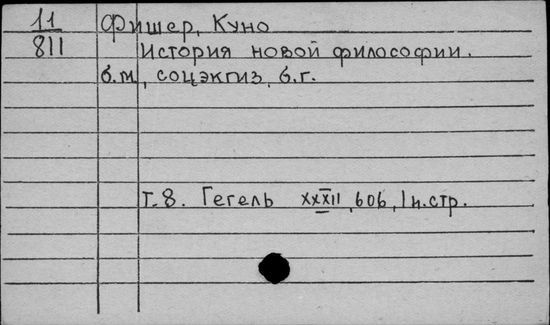 11 Фишер, Куно
811 История новой философии.
б.м., соцэкгиз, б.г.
т.8. Гегель XXXII, 606, 1 н.стр.